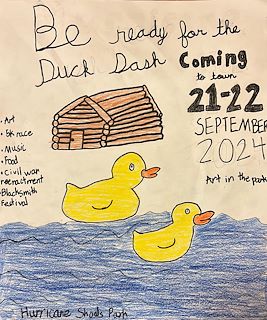 Be ready for the
Duck Dash Coming
to town
21-22
SEPTEMBER
2024
Art in the park
• Art
• 5k race
• Music
• Food
• Civil war
reenactment
• Blacksmith
Festival
Hurricane Shoals Park